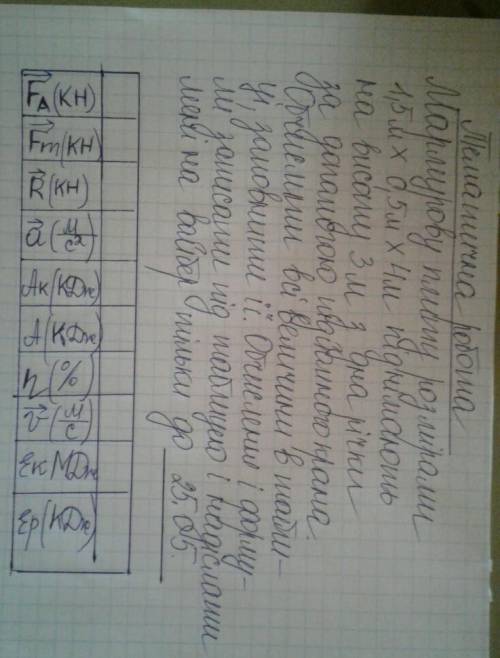 Тематична робота
Мармурову плиту розмірами
1,5м х 0,5м х 4м піднімають
на висоту 3м з дна річки
за допомогою крана.
Обчислити всі величини в табли-
ці, заповнити її. Обчислення і форму-
ли записати під таблицею і надіслати
мені на вайбер тільки до 25.05.
F⃗А (КН)
F⃗т (КН)
R⃗ (КН)
a⃗ (м/с²)
Ак (КДж)
А (КДж)
η (%)
v⃗ (м/с)
Ек МДж
Ер (КДж)